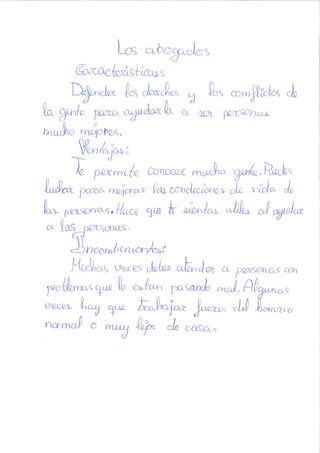 Los abogados
Características
Defender los derechos y los conflictos de
la gente para ayudarla a ser personas
mucho mejores.
Ventajas:
Te permite conocer mucha gente. Puedes
luchar para mejorar las condiciones de vida de
las personas. Hace que te sientas utiles al ayudar
a las personas.
Inconvenientes:
Muchas veces debes atender a personas con
problemas que lo estan pasando mal. Algunas
veces hay que trabajar fuera del horario
normal o muy lejos de casa.